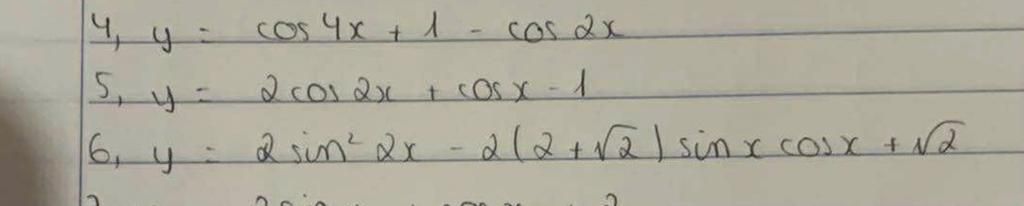 4, y = cos 4x + 1 - cos 2x
5, y = 2 cos 2x + cos x - 1
6, y = 2 sin² 2x - 2(2 + √2) sin x cos x + √2